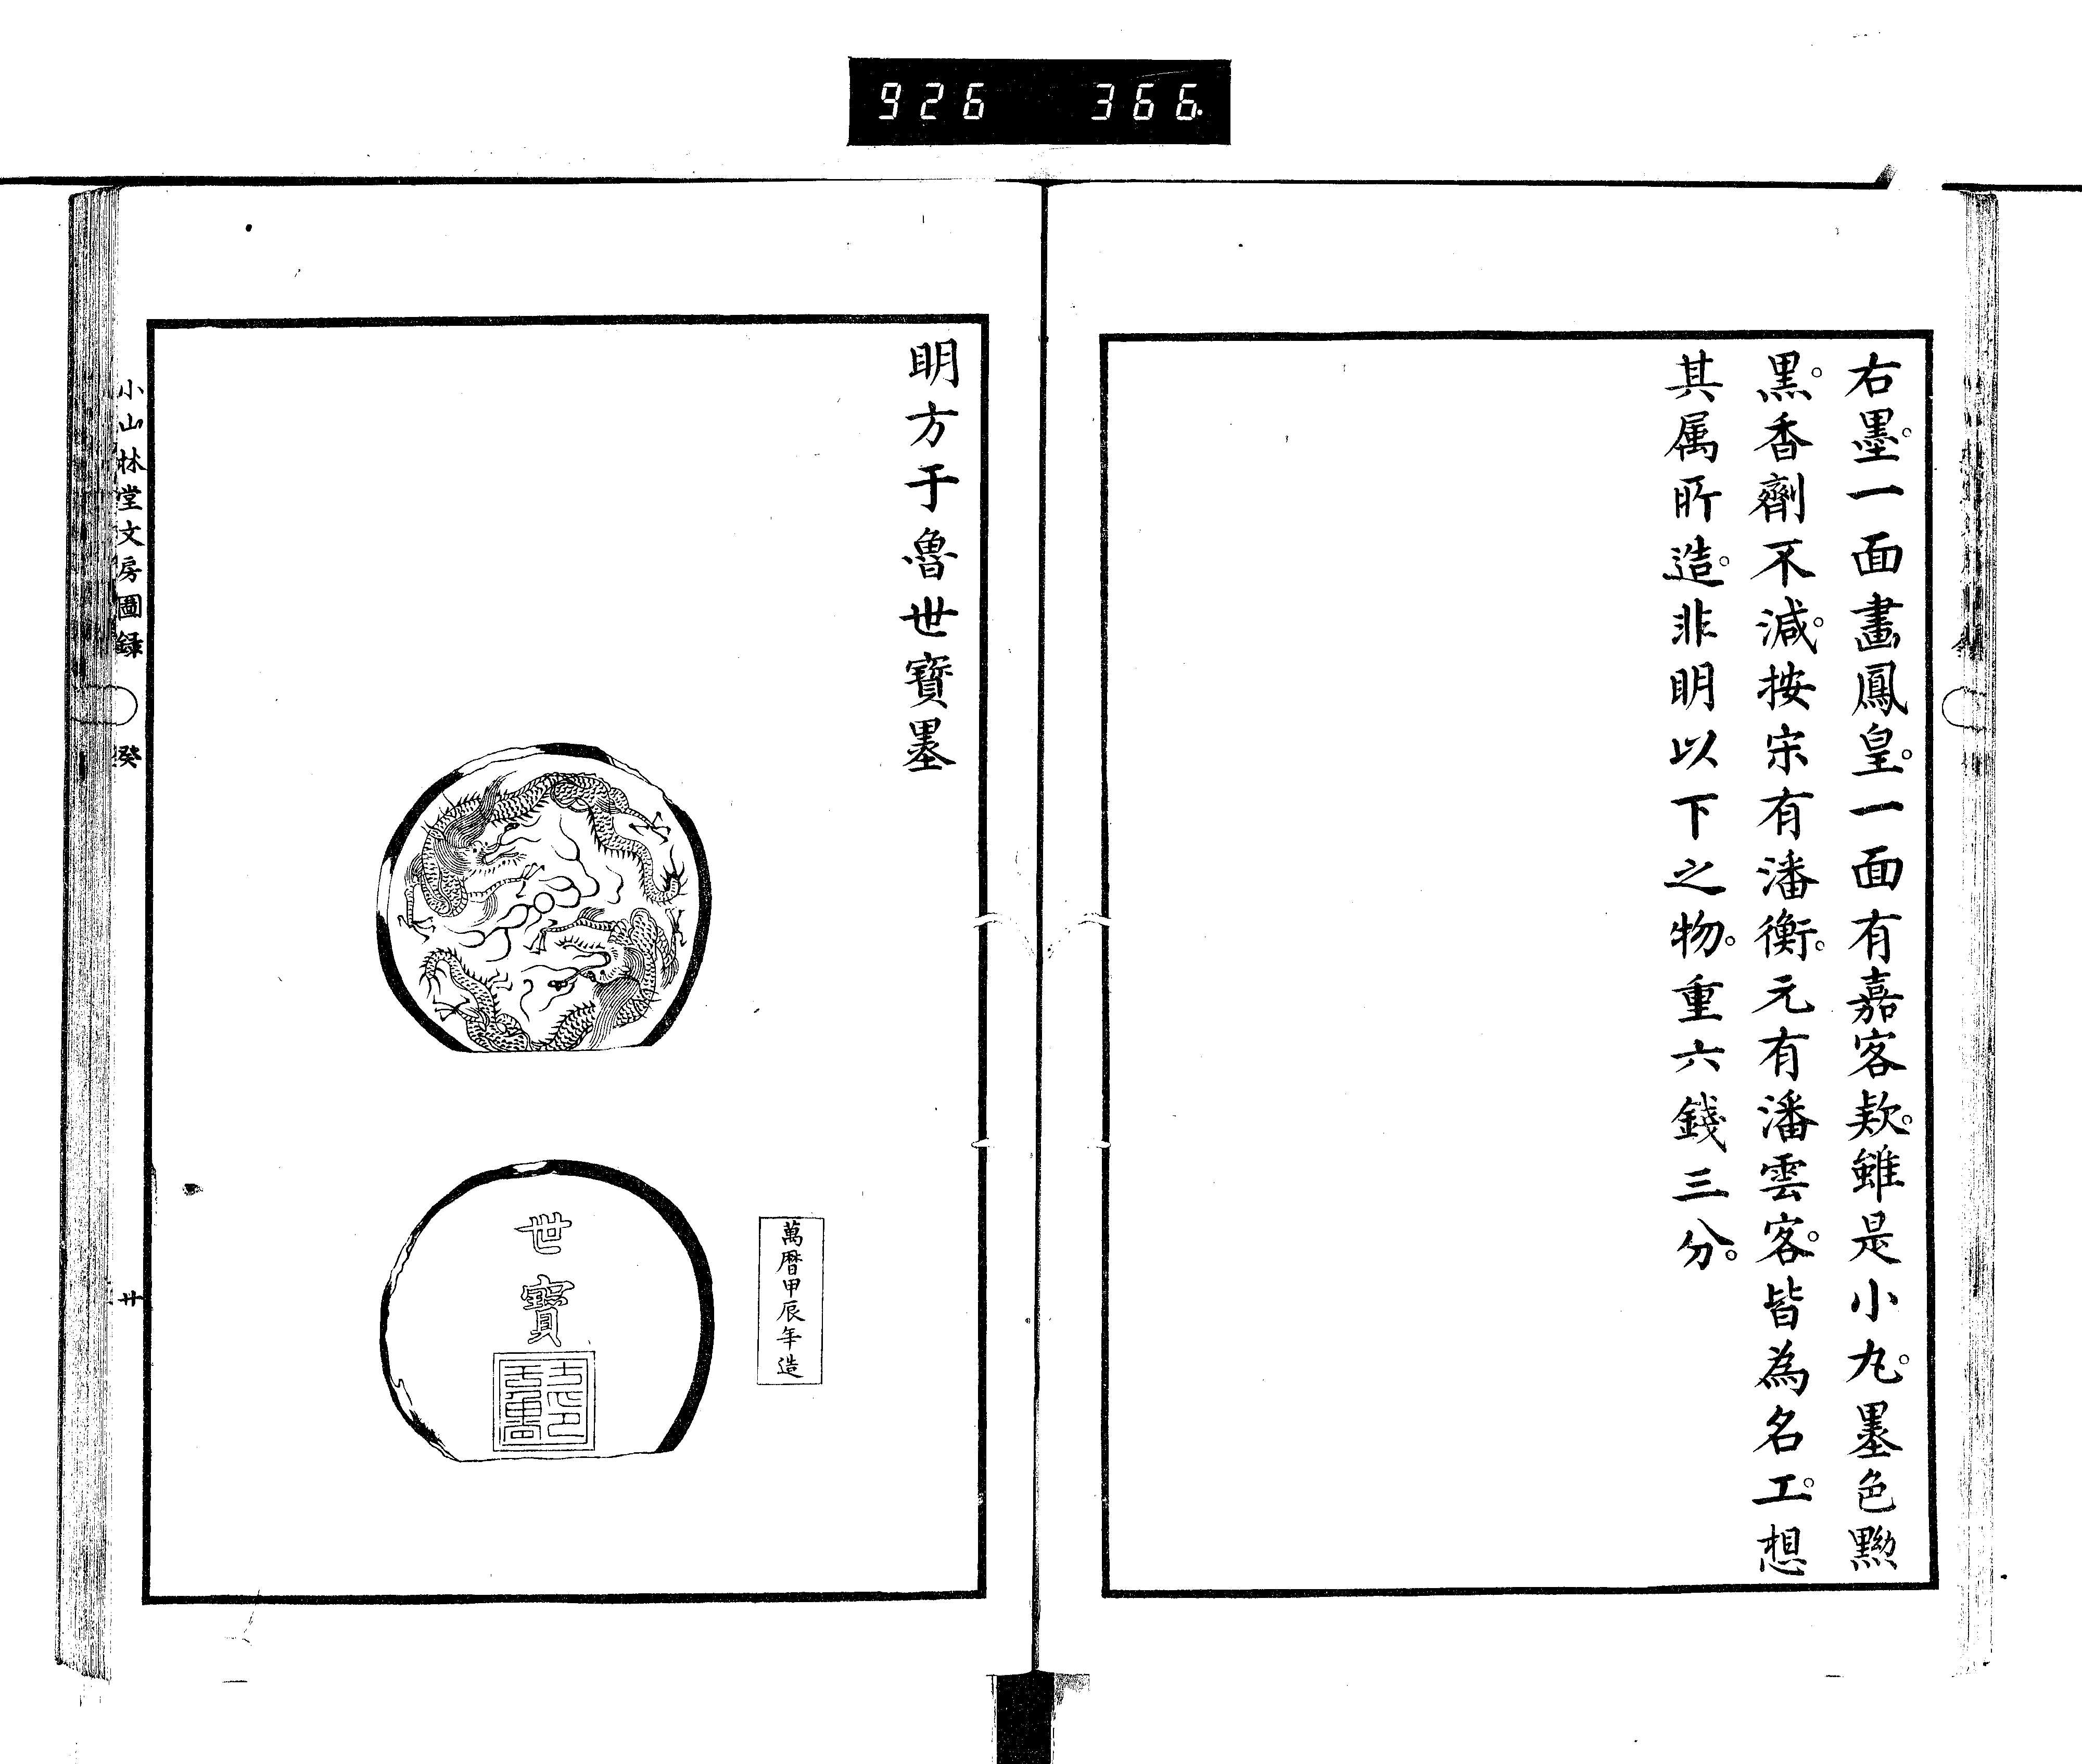 926 366
右墨。一面畫鳳皇。一面有嘉客欵。雖是小丸。墨色黝
黒。香劑不減。按宋有潘衡。元有潘雲客。皆為名工。想
其属所造。非明以下之物。重六錢三分。
明方于魯世寳墨
萬暦甲辰年造
世
寳
小山林堂文房圖録
癸
廿